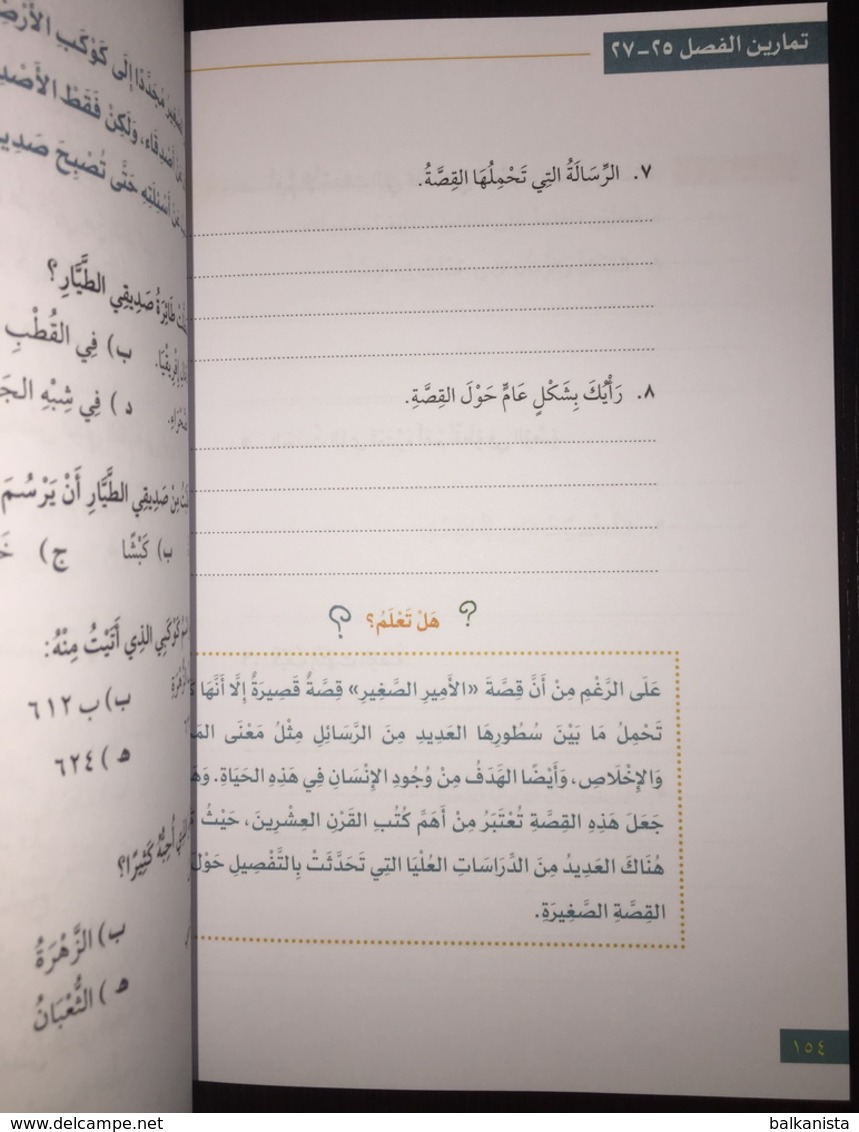 تمارين الفصل ٢٥-٢٧
٧. الرِّسَالَةُ التِي تَحْمِلُهَا القِصَّةُ.
٨. رَأْيُكَ بِشَكْلٍ عَامٍّ حَوْلَ القِصَّةِ.
هَلْ تَعْلَمُ؟
عَلَى الرَّغْمِ مِنْ أَنَّ قِصَّةَ «الأَمِيرِ الصَّغِيرِ» قِصَّةٌ قَصِيرَةٌ إِلَّا أَنَّهَا
تَحْمِلُ مَا بَيْنَ سُطُورِهَا العَدِيدَ مِنَ الرَّسَائِلِ مِثْلُ مَعْنَى
وَالإِخْلَاصِ، وَأَيْضًا الهَدَفُ مِنْ وُجُودِ الإِنْسَانِ فِي هَذِهِ الحَيَاةِ.
جَعَلَ هَذِهِ القِصَّةِ تُعْتَبَرُ مِنْ أَهَمِّ كُتُبِ القَرْنِ العِشْرِينَ، حَيْثُ
هُنَاكَ العَدِيدُ مِنَ الدِّرَاسَاتِ العُلْيَا التِي تَحَدَّثَتْ بِالتَّفْصِيلِ حَوْلَ
القِصَّةِ الصَّغِيرَةِ.
١٥٤
مُجَدَّدًا إِلَى كَوْكَبِ الأَرْضِ
أَصْدِقَاءَ، وَلَكِنْ فَقَطْ
أَسْئِلَتِهِ حَتَّى تُصْبِحَ
طَائِرَةُ صَدِيقِي الطَّيَّارِ؟
ب) فِي القُطْبِ
د) فِي شِبْهِ
مِنْ صَدِيقِي الطَّيَّارِ أَنْ يَرْسُمَ
ب) كَبْشًا ج)
كَوْكَبِي الذِي أَتَيْتُ مِنْهُ:
ب) ب ٦١٢
ه) ٦٢٤
أُحِبُّهُ كَثِيرًا؟
ب) الزَّهْرَةُ
ه) الثُّعْبَانُ
www.delcampe.net
balkanista